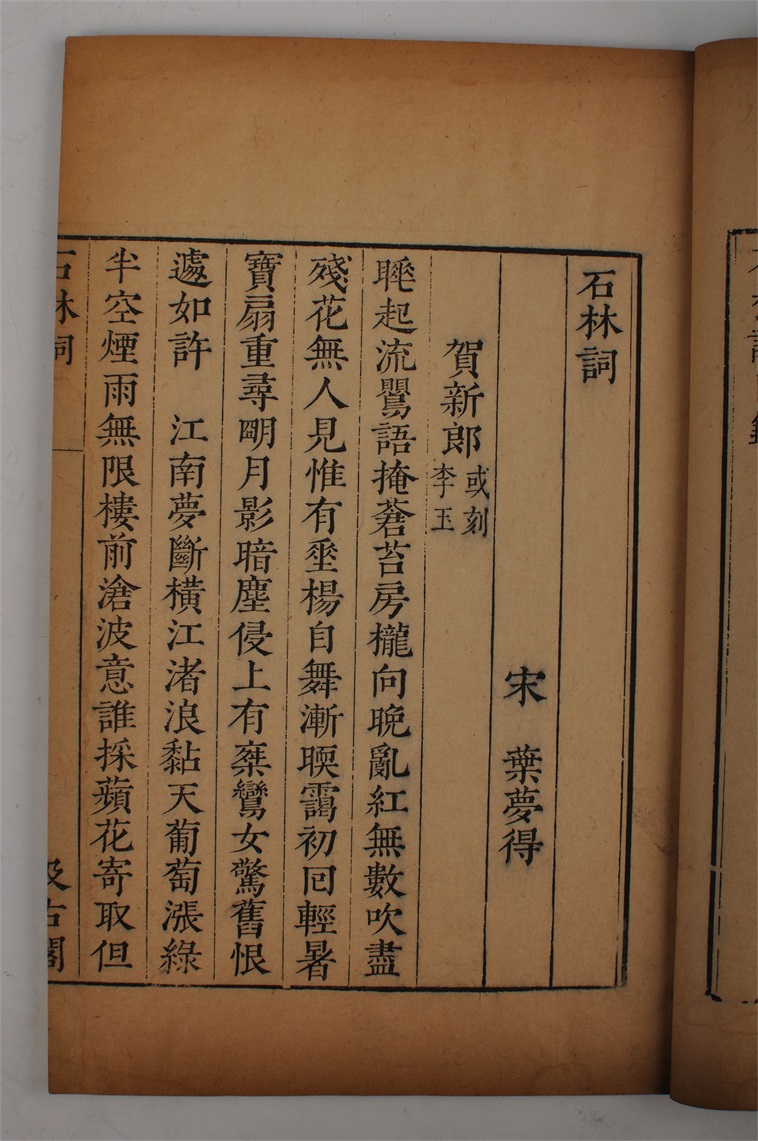 石林詞
宋　葉夢得
賀新郎 或刻李玉
睡起流鶯語掩蒼苔房櫳向晚亂紅無數吹盡
殘花無人見惟有垂楊自舞漸暖靄初回輕暑
寶扇重尋明月影暗塵侵上有乘鸞女驚舊恨
遽如許　江南夢斷橫江渚浪黏天葡萄漲綠
半空煙雨無限樓前滄波意誰採蘋花寄取但
石林詞
汲古閣